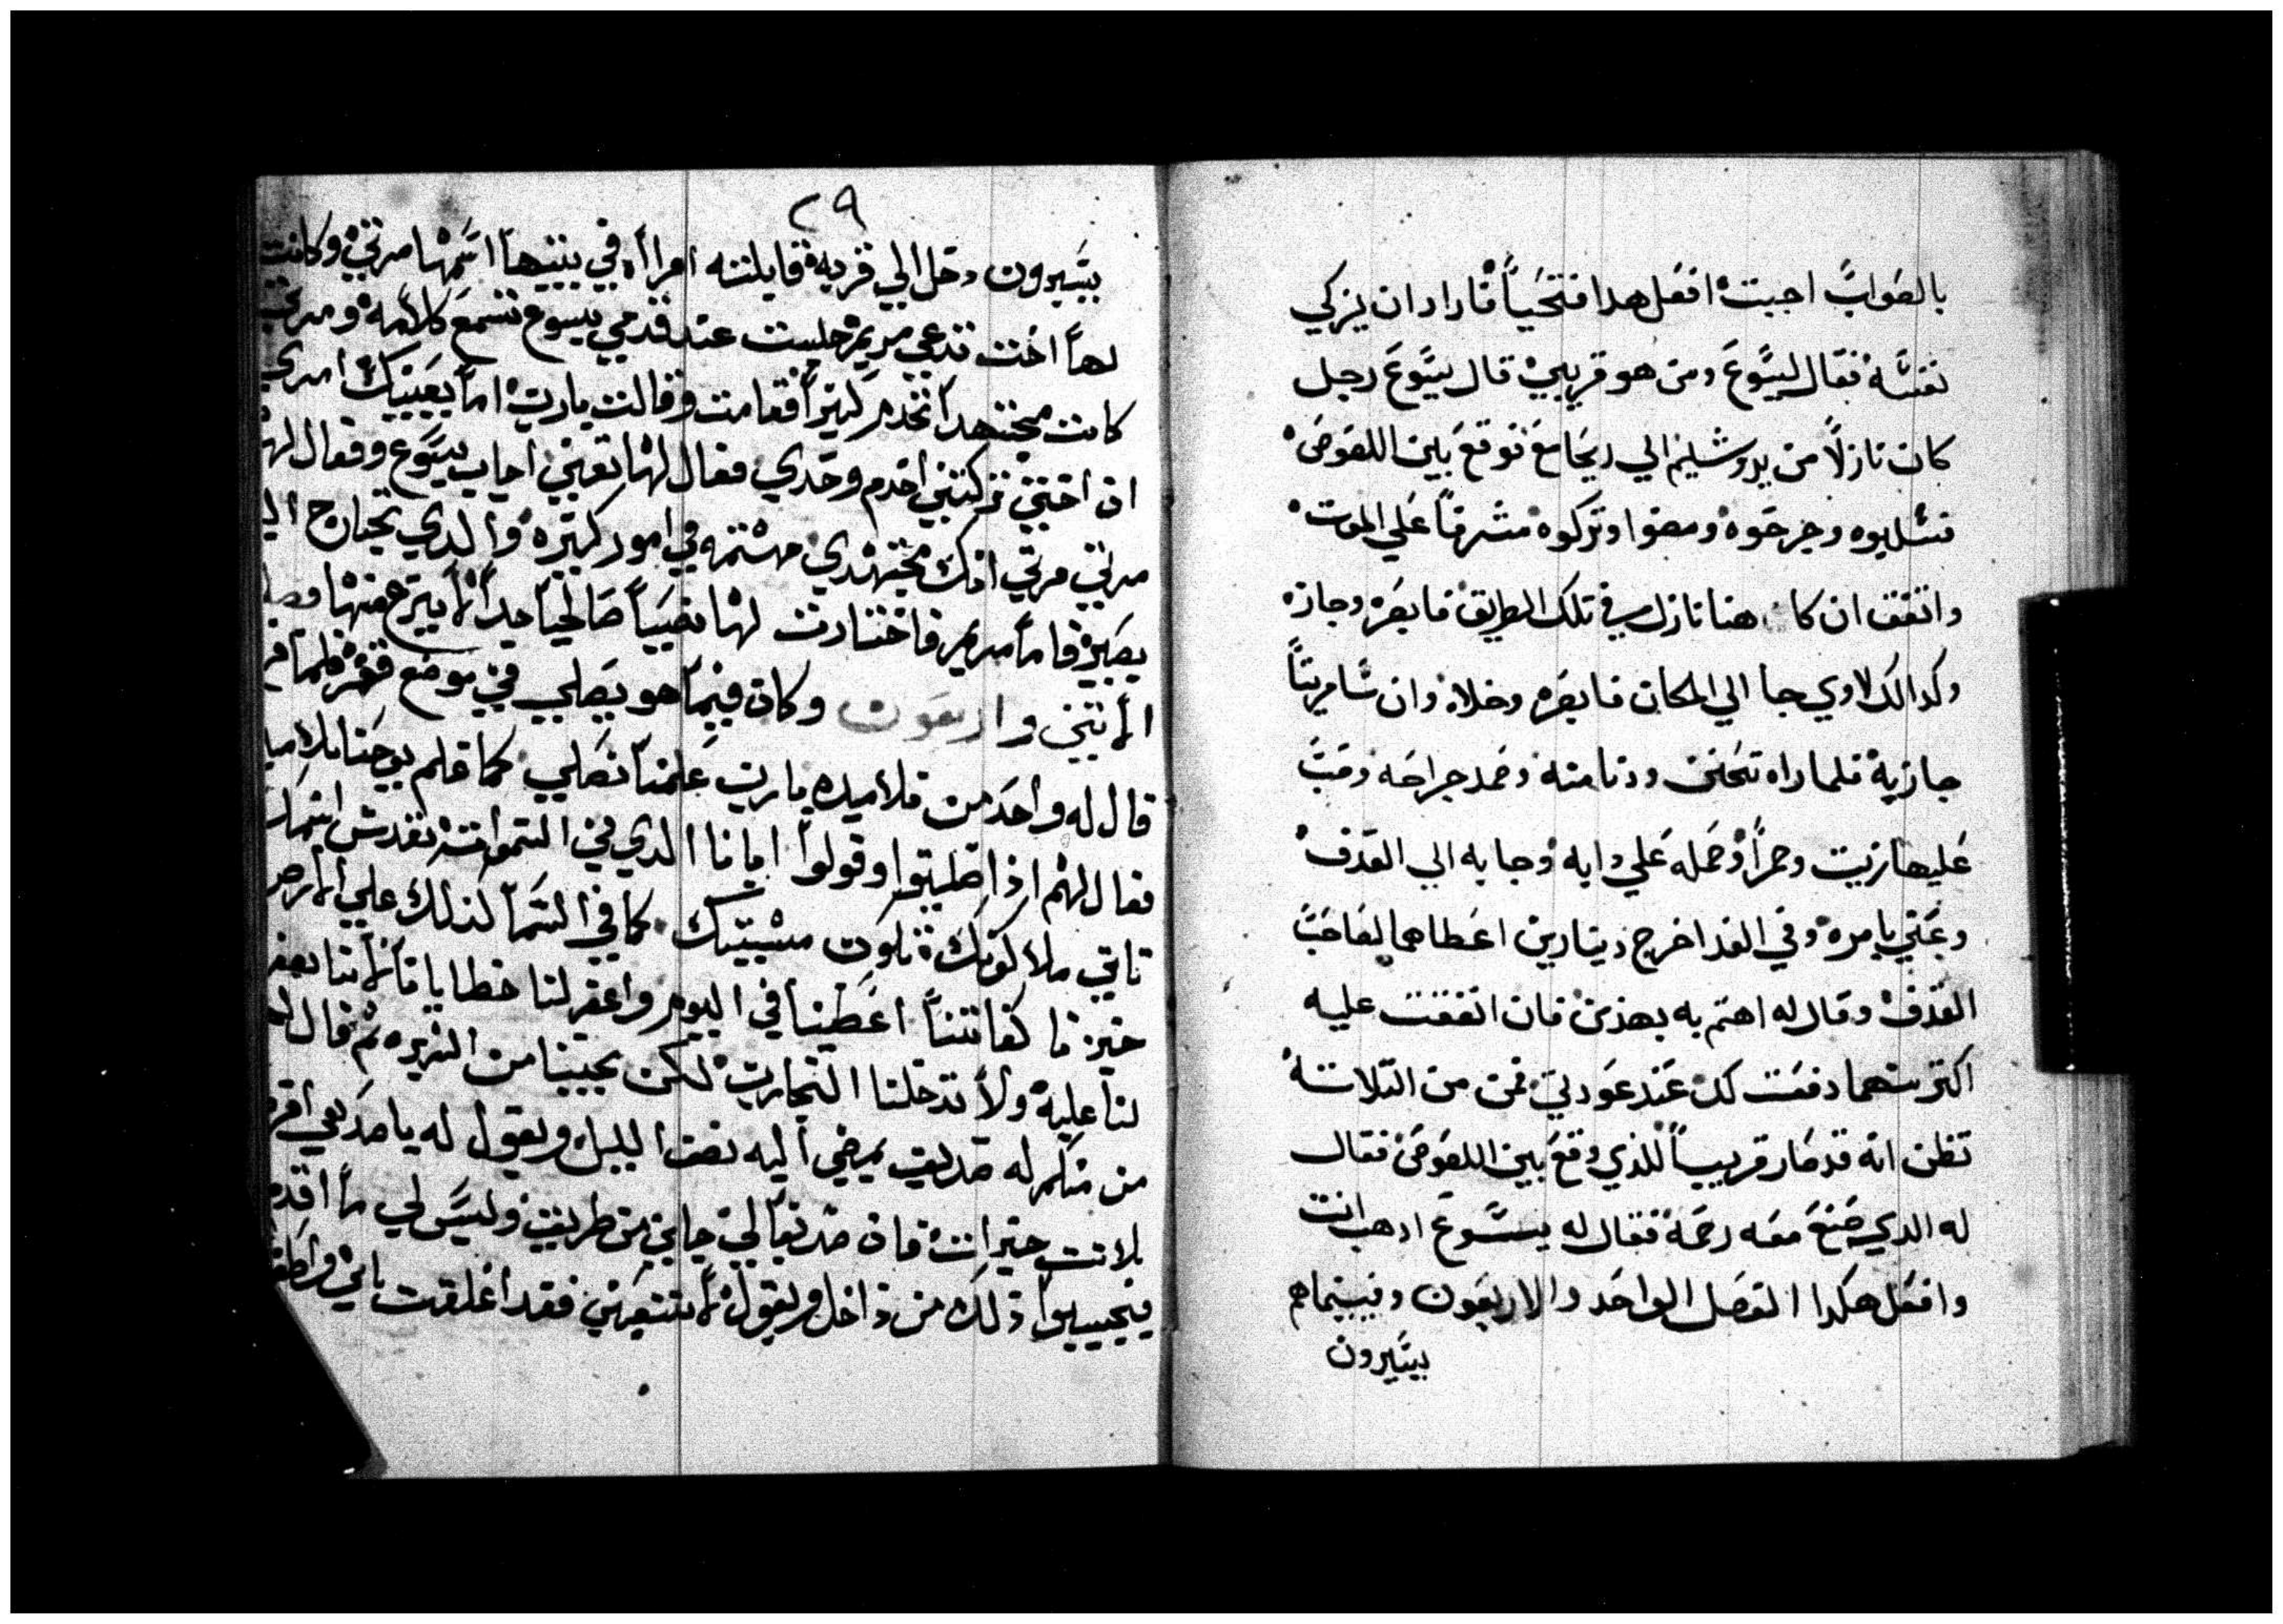 بالصواب اجبت افعل هدا فتحيا فاراد ان يزكي
نفسه فقال ليسوع ومن هو قريبي قال يسوع رجل
كان نازلاً من يروشليم الي ريحا فوقع بين اللصوص
فسلبوه وجرحوه ومضوا وتركوه مشرفاً علي الموت
واتفق ان كاهنا نازل في تلك الطريق فابصره وجازه
وكدالك لاوي جا الي المكان فابصره وخلاه وان سامريتاً
جازبه فلما راه تحنن ودنا منه وضمد جراحه وصب
عليها زيت وخمراً وحمله علي دابه وجا به الي الفندق
وعني بامره وفي الغد اخرج دينارين اعطاهما لصاحب
الفندق وقال له اهتم به بهذين فان انفقت عليه
اكتر منهما دفعت لك عند عودتي فمن من التلاتة
تظن انه قد صار قريباً للذي وقع بين اللصوص فقال
له الدي صنع معه رحمة فقال له يسوع ادهب انت
وافعل هكدا الفصل الواحد والاربعون وفيبنماهم
يسيرون
٢٩
يسيرون دخل الي قرية فقابلته امراأه في بيتها اسمها مرتي وكانت
لها اخت تدعي مريم جلست عند قدمي يسوع تسمع كلامه ومرتي
كانت مجتهدا تخدم كتيراً فقامت وقالت يارب اما يعنيك امري
ان اختي تركتني اخدم وحدي فقال لها تعيني اجاب يسوع وقال لها
مرتي مرتي انك مجتهدي مهتمه في امور كتيره والدي تحتاج الي
يصير فاما مريم فاختارت لها نصيباً صالحياً جداً لا ينزع منها
الاتني واربعون وكان فيما هو يصلي في موضع قفر فلما
قال له واحد من تلاميده يارب علمنا نصلي كما علم يوحنا تلاميد
فقال لهم اذا صليتوا وقولوا ابانا الدي في السموات تقدس اسمك
تاتي ملاكوتك تكون مشيتك كما في السما كذلك علي الارض
خبزنا كفاتنا اعطينا في اليوم واغفر لنا خطايانا لاننا نغفر
لنا عليه ولا تدخلنا التجارب لكن نجينا من الشرير ثم قال
من منكم له صديق يمضي اليه نصف الليل ويقول له يا صديقي اقر
بلاتت خبزات فان صديقا لي جاني من طريق وليس لي ما اقدم
فيجيبوا ذلك من داخل ويقول لا تتعبني فقد اغلقت بابي